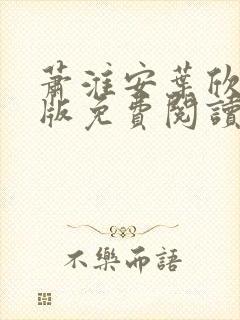 蕭淮安葉欣
版免費閱讀
不樂而語